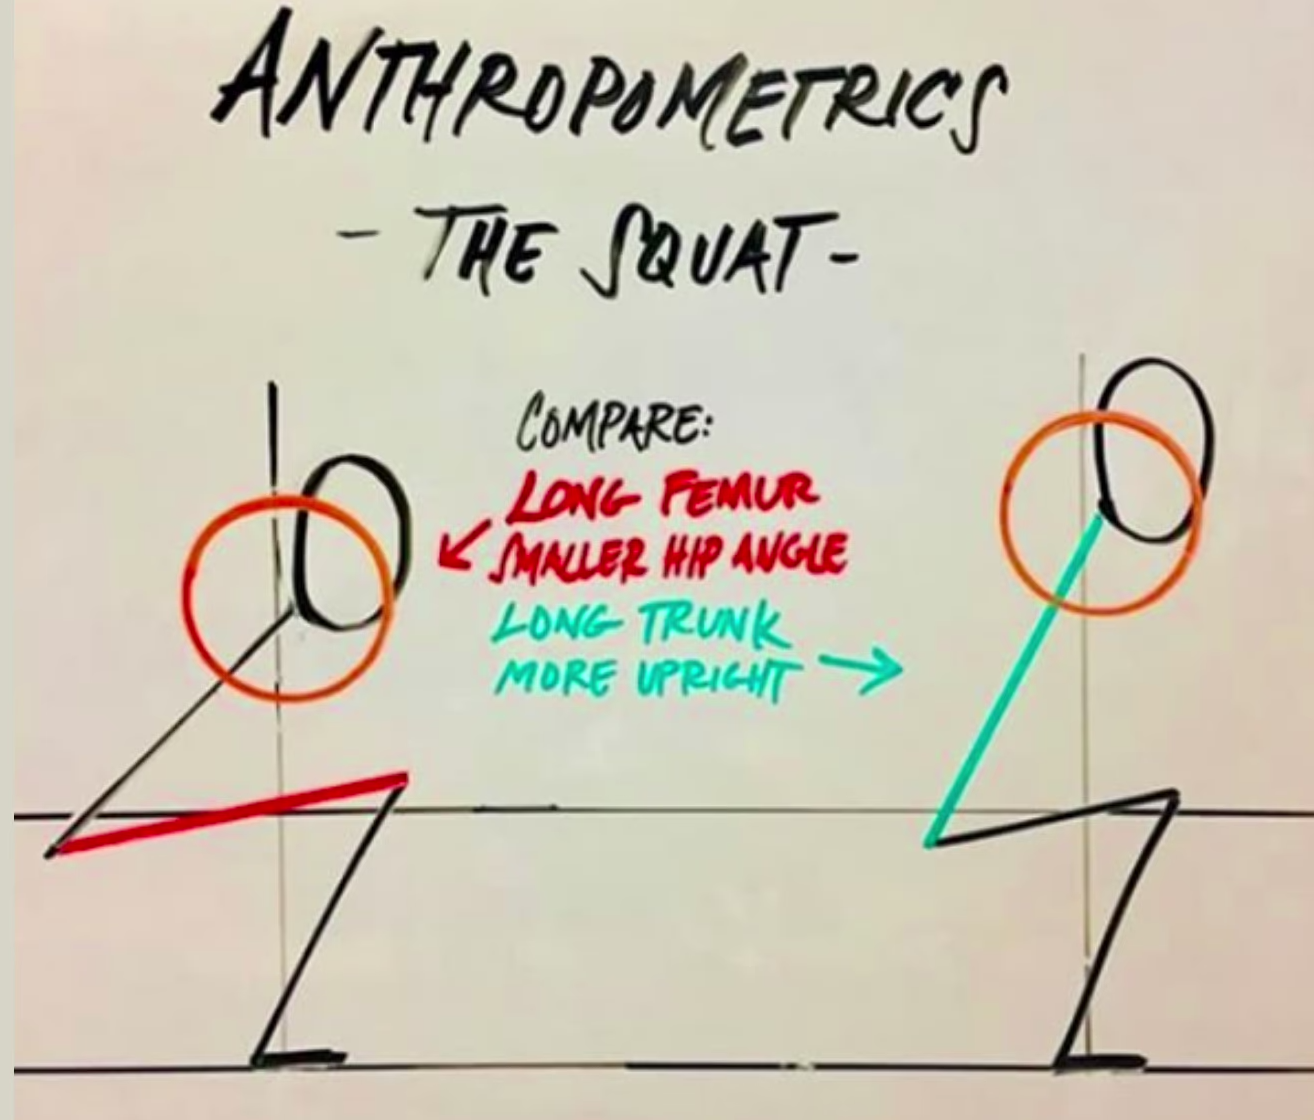 ANTHROPOMETRICS
- THE SQUAT -
COMPARE:
LONG FEMUR
SMALLER HIP ANGLE
LONG TRUNK
MORE UPRIGHT